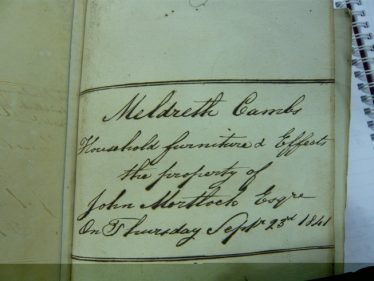 Meldreth Cambs
Household furniture & Effects
the property of
John Mortlock Esqre
On Thursday Septr 23rd 1841